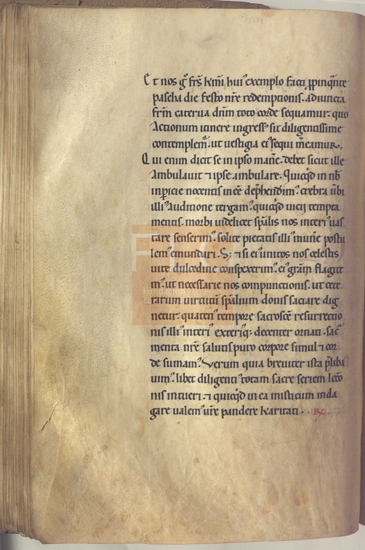 Et nos gͥ frs̄ kmī hui exemplo facti ꝓpinq̄nte
pascha die festo nr̄e redemptionis. adiuncta
frm̄ caterua dnm̄ toto corde sequamur. quo
actionum itinere ingress sit diligentissime
contemplem̄. ut uestigia ei sequi meamur.
Qui enim dicit se in ipso mane. debet sicut ille
ambulauit et ipse ambulare. Quicq̄d in nob
inspicie nocentis inee dep̄hendim. crebra ūbi
illi auditione tergam. quicq̄d uicii tempta
mentis. morbi uidelicet spalis nos interi uas
tare senserim. solite pietatis illi mune postu
lem emundari. S; si ei unitos nos celestis
uite dulcedine conspexerim. ei gram flagite
m. ut necessarie nos compunctionis. ut cete
rarum uirtutū spalium donis saciare dig
netur. quaten tempore sacrosce resurrectio
nis illi interi exteriq; decenter ornati. sac
menta nr̄e salutis puro corpore simul et cor
de sumam. Verum quia breuiter ista plibaui
uim. libet diligenti totam sacre seriem lectio
nis intueri. et quicq̄d in ea misticum inda
gare ualem. ur̄e pandere karitati.